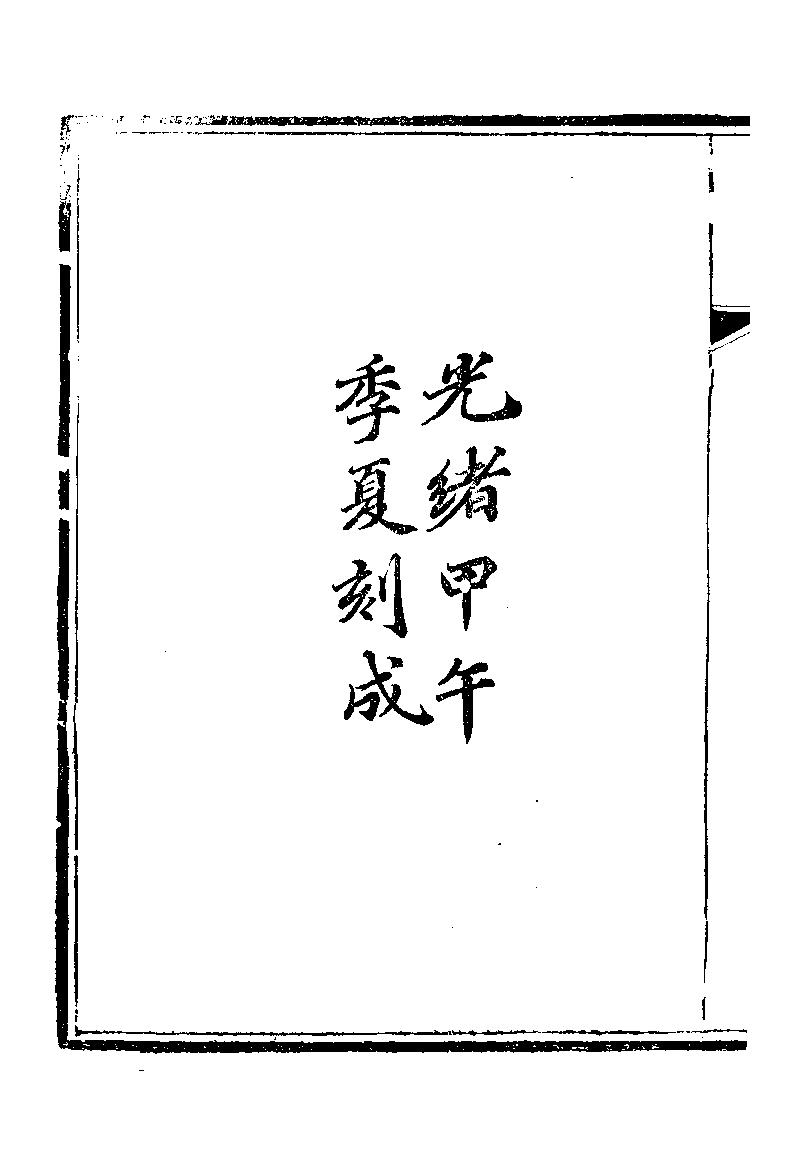 光緒甲午
季夏刻成